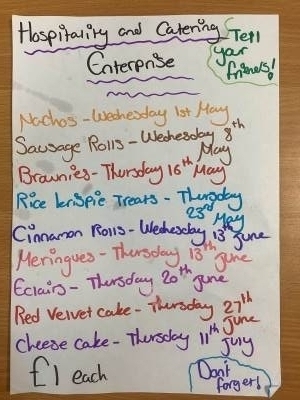 Hospitality and Catering
Enterprise
Tell
your
friends!
Nachos - Wednesday 1st May
Sausage Rolls - Wednesday 8th
May
Brownies - Thursday 16th May
Rice krispie Treats - Thursday
23rd May
Cinnamon Rolls - Wednesday 13th june
Meringues - Thursday 13th june
Eclairs - Thursday 20th june
Red Velvet cake - Thursday 27th
june
Cheese cake - Thursday 11th july
£1 each
Don't
forget!